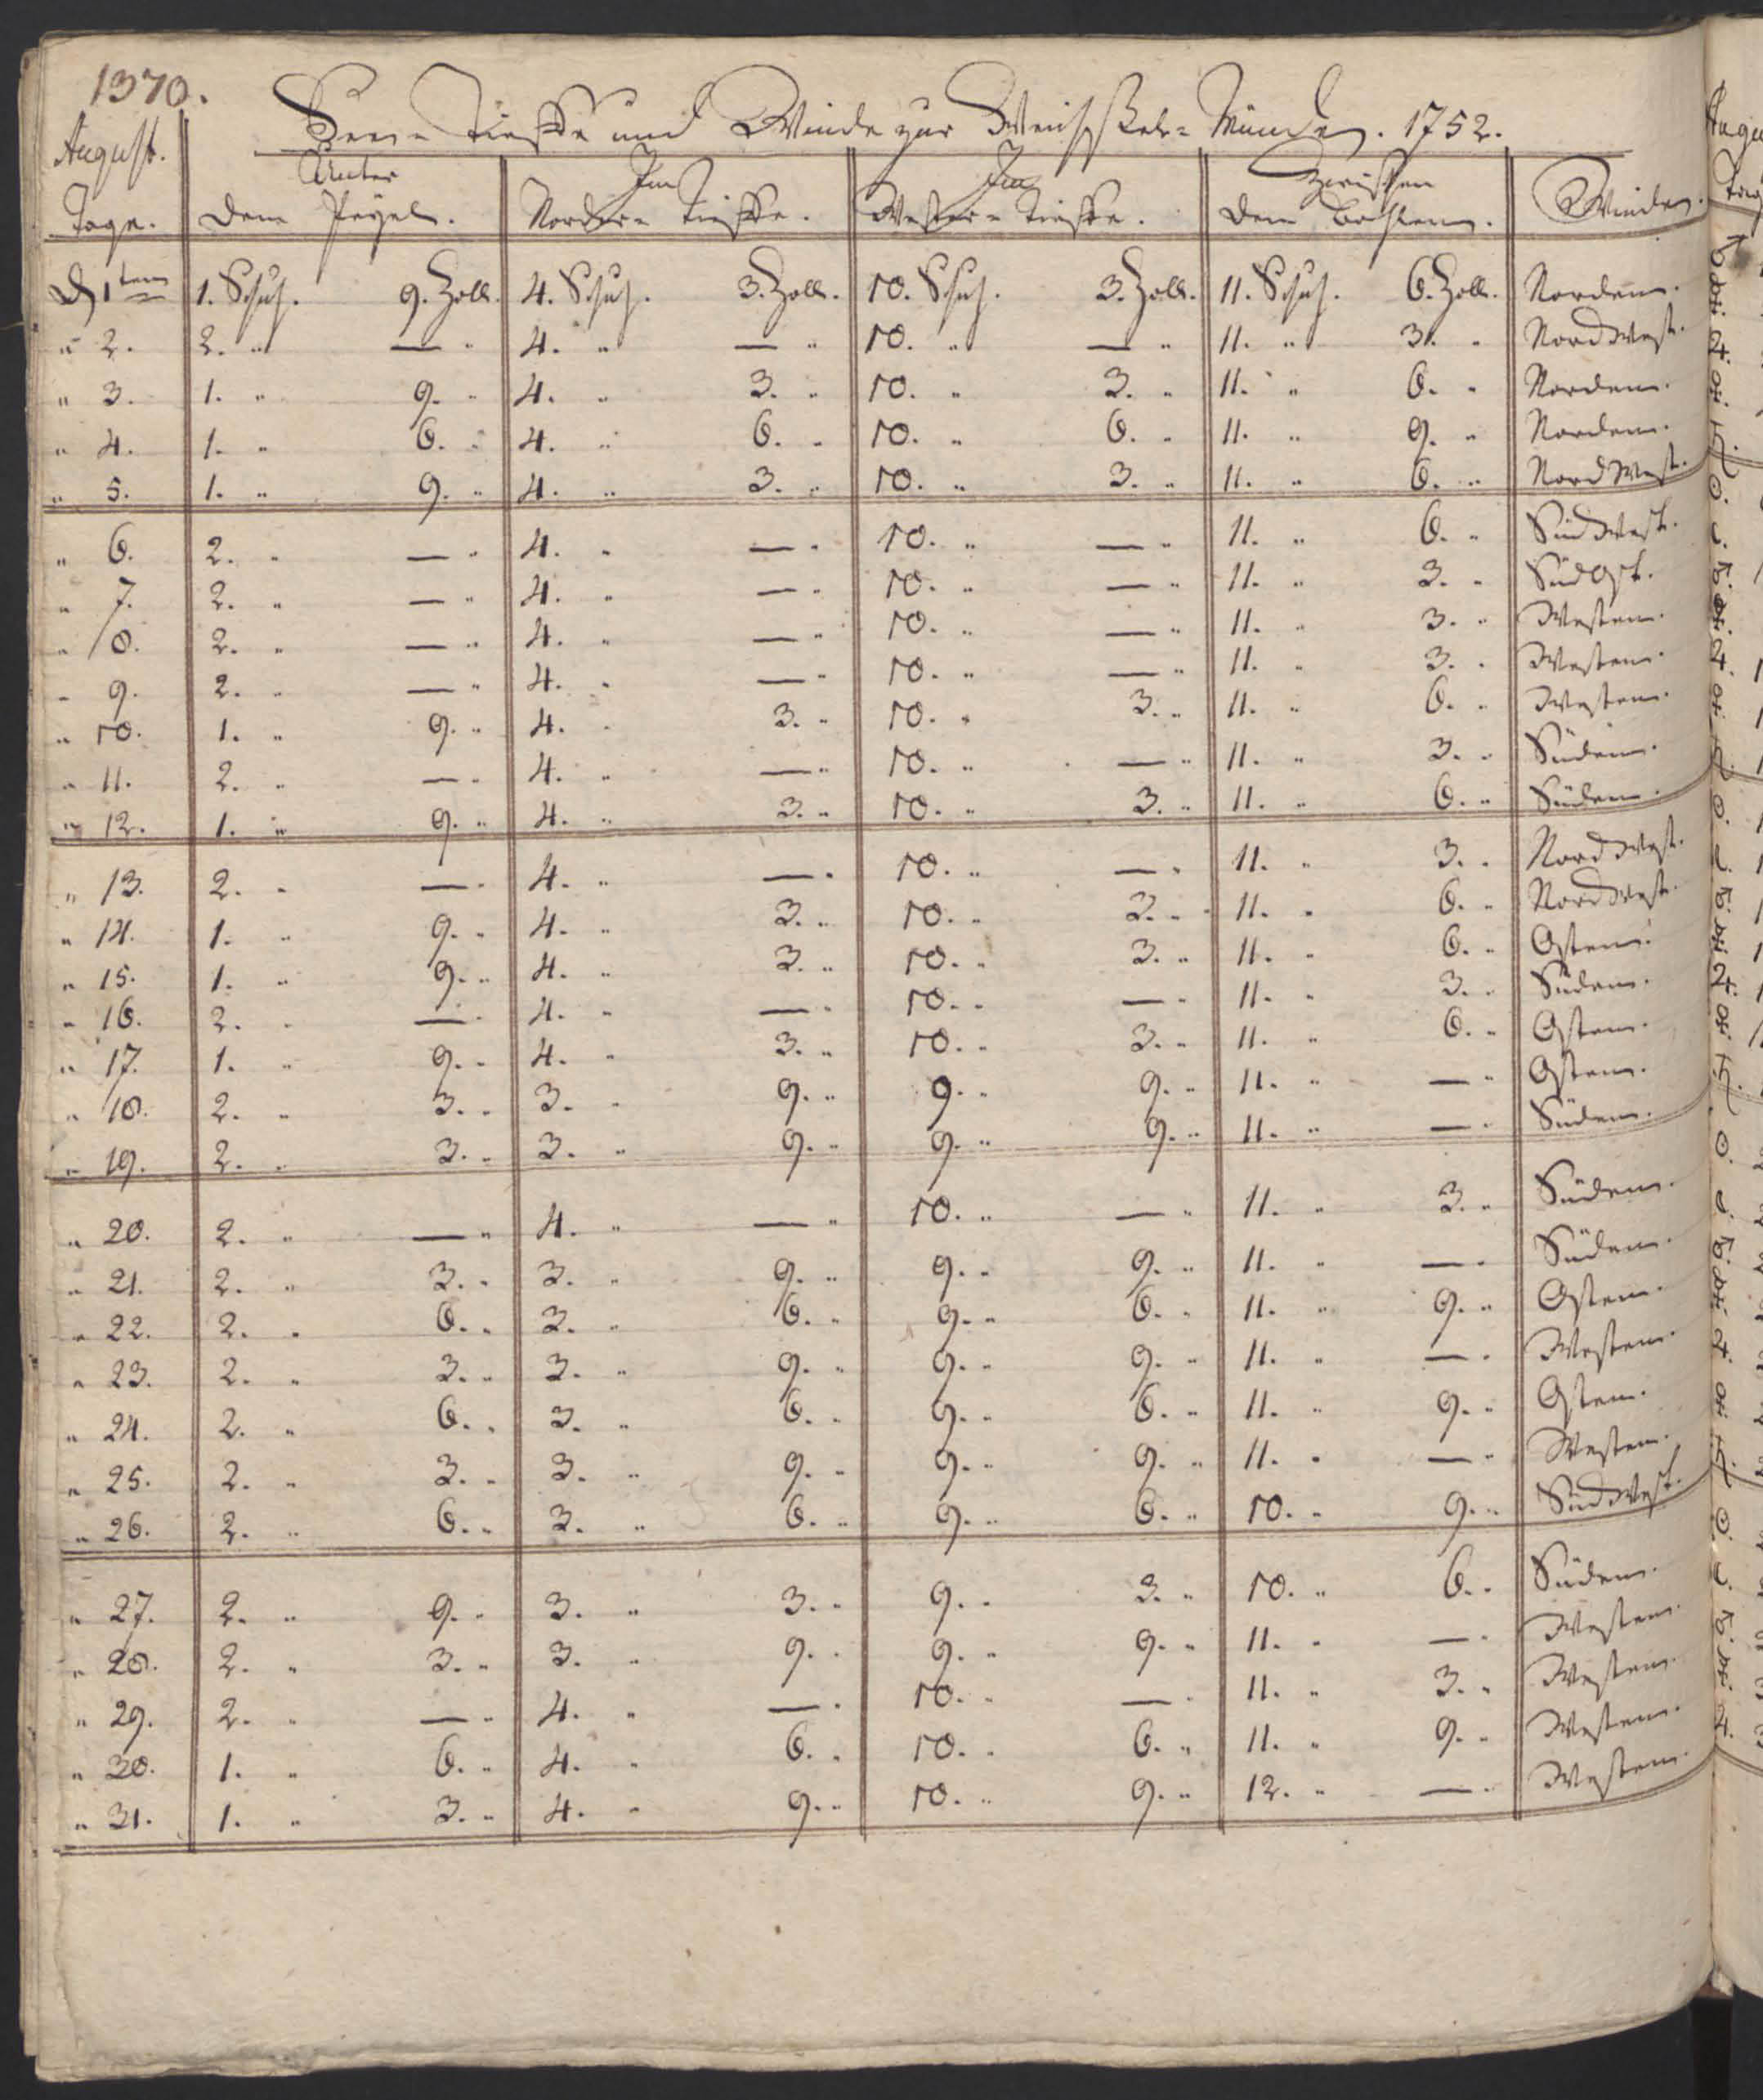 1370.
See= Tieffe und Winde zur Weichsel= Münden. 1752.
August. Unter Im Im Zwischen
Tage. dem Pegel. Norder= Tieffe. Wester= Tieffe. dem Winden.
D 1ten 1. Schuh. 9. Zoll. 4. Schuh. 3. Zoll. 10. Schuh. 3. Zoll. 11. Schuh. 6. Zoll. Norden.
" 2. 2. " — " 4. " — " 10. " — " 11. " 3. " NordWest.
" 3. 1. " 9. " 4. " 3. " 10. " 3. " 11. " 6. " Norden.
" 4. 1. " 6. " 4. " 6. " 10. " 6. " 11. " 9. " Norden.
" 5. 1. " 9. " 4. " 3. " 10. " 3. " 11. " 6. " NordWest.
" 6. 2. " — " 4. " — " 10. " — " 11. " 6. " SüdWest.
" 7. 2. " — " 4. " — " 10. " — " 11. " 3. " SüdOst.
" 8. 2. " — " 4. " — " 10. " — " 11. " 3. " Westen.
" 9. 2. " — " 4. " — " 10. " — " 11. " 3. " Westen.
" 10. 1. " 9. " 4. " 3. " 10. " 3. " 11. " 6. " Westen.
" 11. 2. " — " 4. " — " 10. " — " 11. " 3. " Süden.
" 12. 1. " 9. " 4. " 3. " 10. " 3. " 11. " 6. " Süden.
" 13. 2. " — " 4. " — " 10. " — " 11. " 3. " NordWest.
" 14. 1. " 9. " 4. " 3. " 10. " 3. " 11. " 6. " NordWest.
" 15. 1. " 9. " 4. " 3. " 10. " 3. " 11. " 6. " Osten.
" 16. 2. " — " 4. " — " 10. " — " 11. " 3. " Süden.
" 17. 1. " 9. " 4. " 3. " 10. " 3. " 11. " 6. " Osten.
" 18. 2. " 3. " 3. " 9. " 9. " 9. " 11. " — " Osten.
" 19. 2. " 3. " 3. " 9. " 9. " 9. " 11. " — " Süden.
" 20. 2. " — " 4. " — " 10. " — " 11. " 3. " Süden.
" 21. 2. " 3. " 3. " 9. " 9. " 9. " 11. " — " Süden.
" 22. 2. " 6. " 3. " 6. " 9. " 6. " 11. " 9. " Osten.
" 23. 2. " 3. " 3. " 9. " 9. " 9. " 11. " — " Westen.
" 24. 2. " 6. " 3. " 6. " 9. " 6. " 11. " 9. " Osten.
" 25. 2. " 3. " 3. " 9. " 9. " 9. " 11. " — " Westen.
" 26. 2. " 6. " 3. " 6. " 9. " 6. " 10. " 9. " SüdWest.
" 27. 2. " 9. " 3. " 3. " 9. " 3. " 10. " 6. " Süden.
" 28. 2. " 3. " 3. " 9. " 9. " 9. " 11. " — " Westen.
" 29. 2. " — " 4. " — " 10. " — " 11. " 3. " Westen.
" 30. 1. " 6. " 4. " 6. " 10. " 6. " 11. " 9. " Westen.
" 31. 1. " 3. " 4. " 9. " 10. " 9. " 12. " — " Westen.